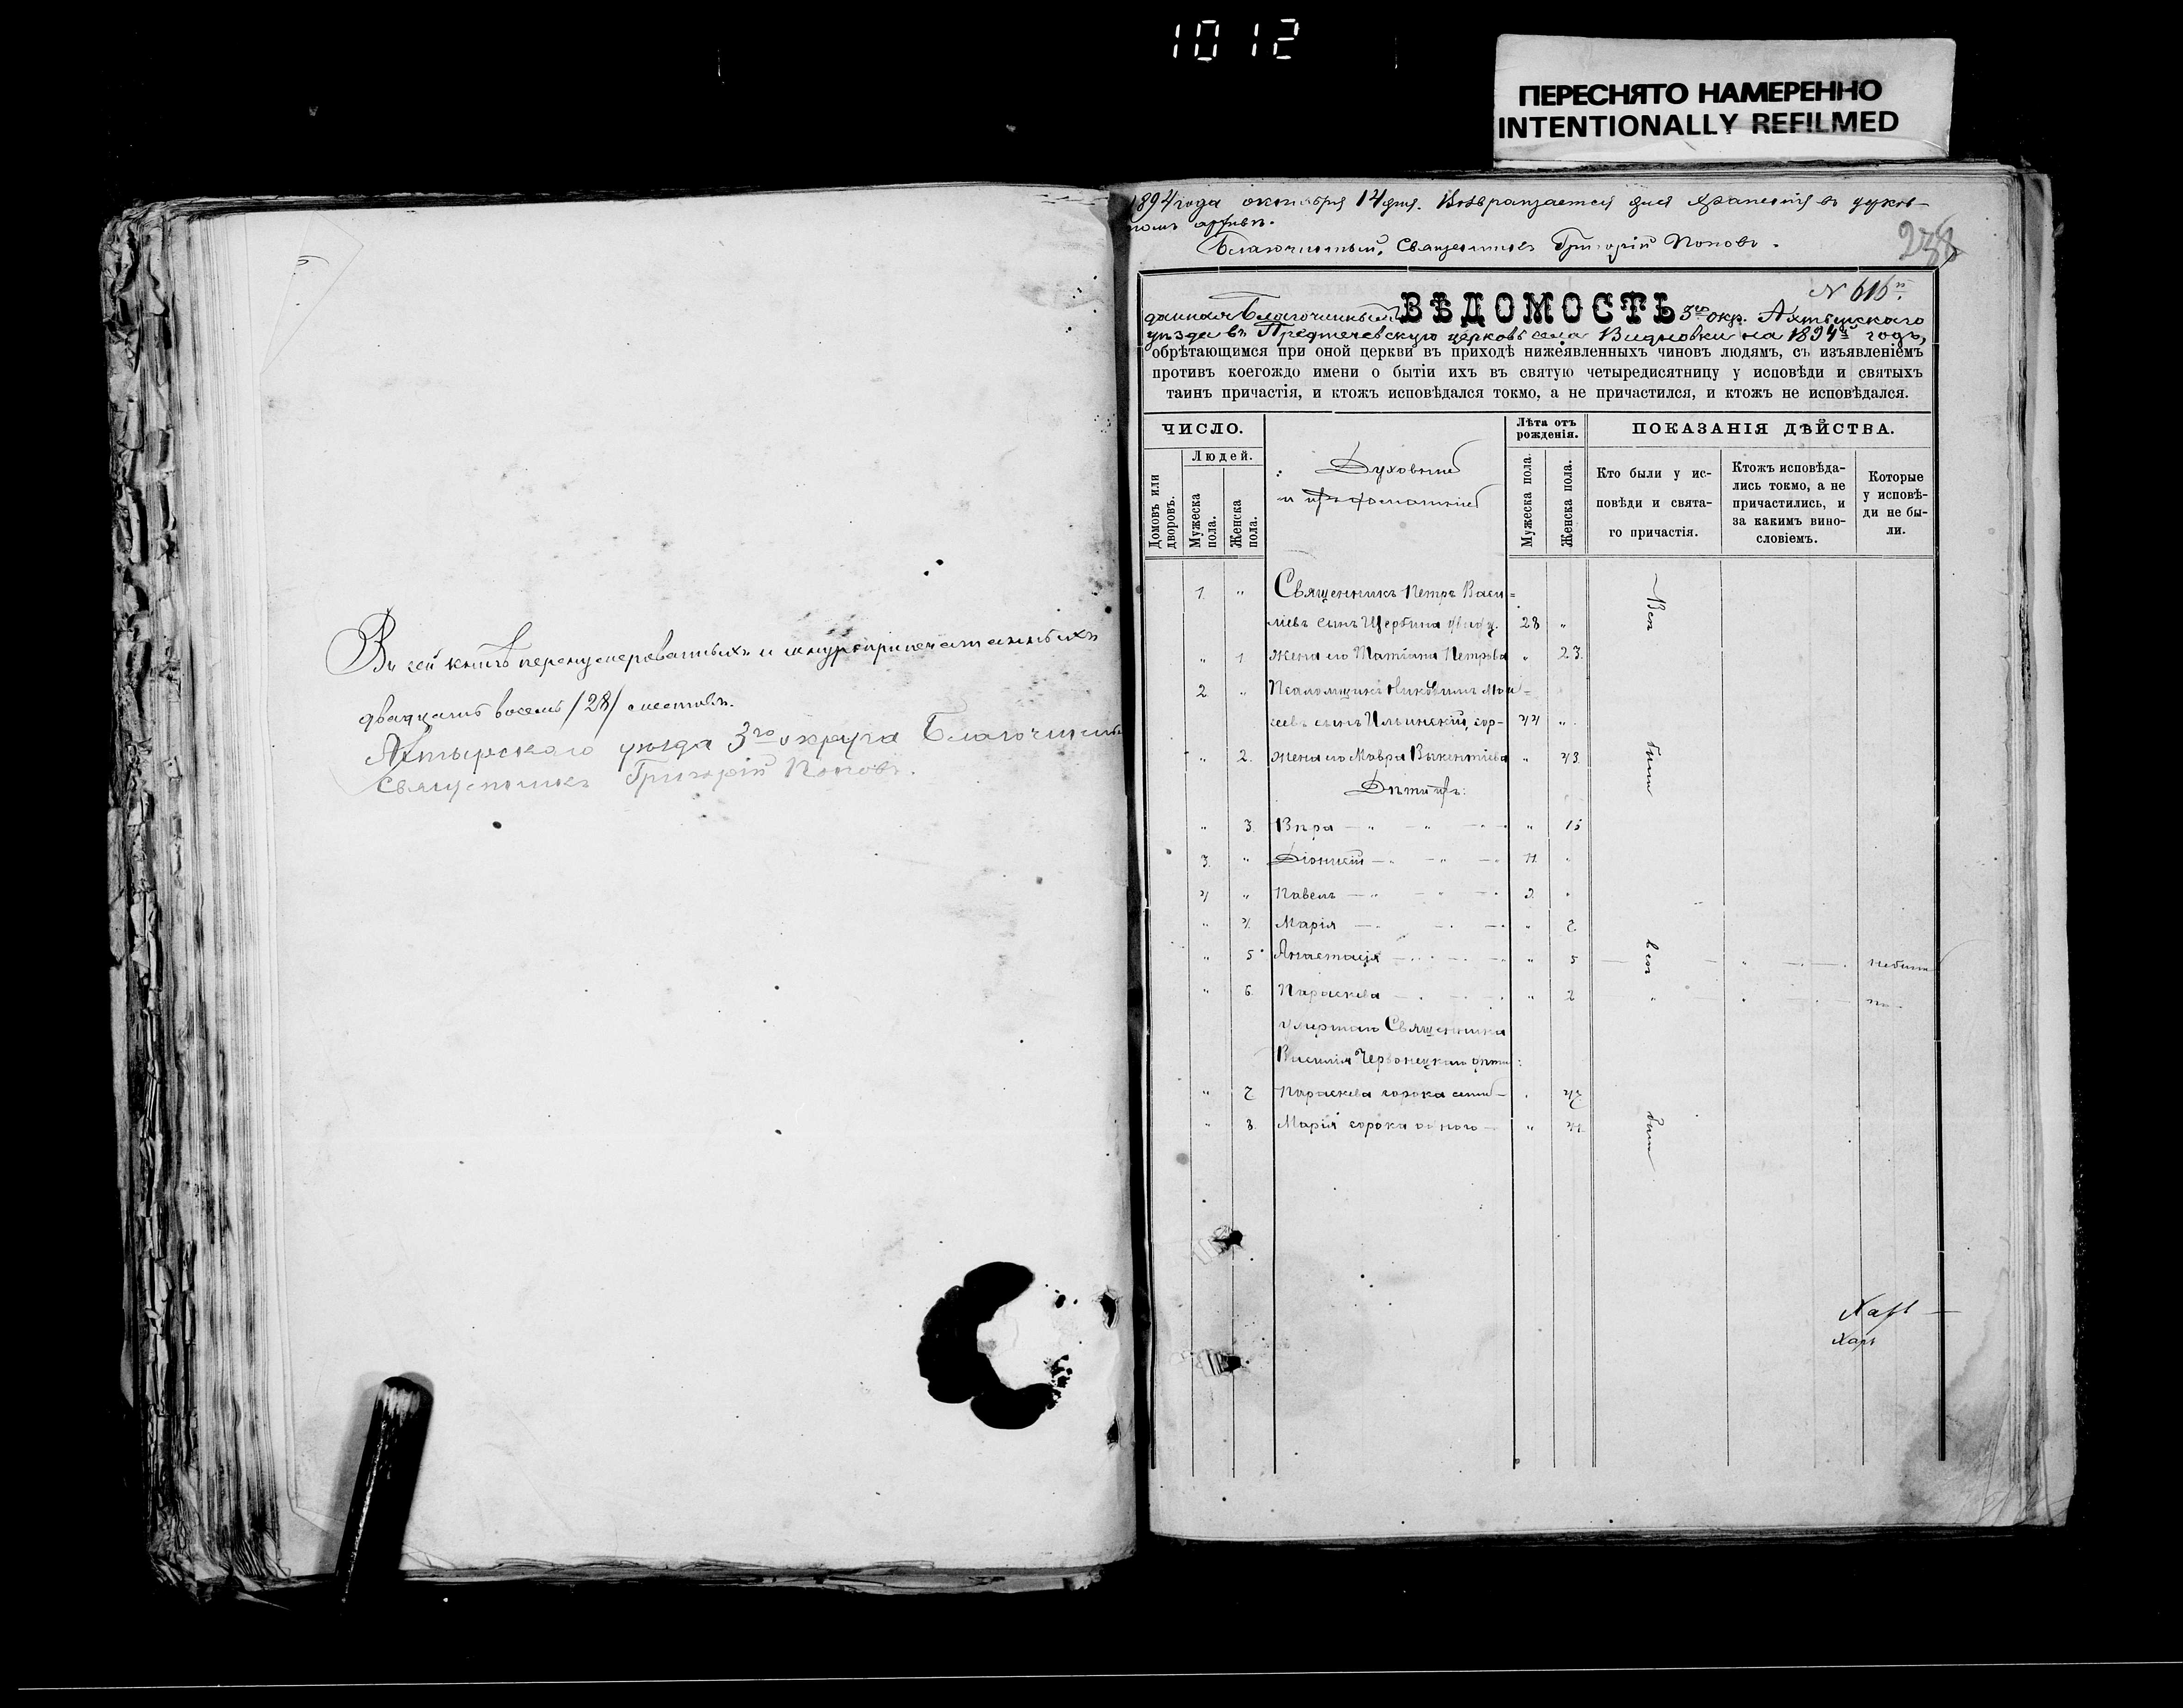 1012
ПЕРЕСНЯТО НАМЕРЕННО
INTENTIONALLY REFILMED
Въ сей книгѣ перенумерованныхъ и шнуроприпечатанныхъ
двадцать восемь /28/ листовъ.
Ахтырского уѣзда 3го округа Благочинный
Священникъ Григорій Поповъ.
1894 года октября 14 дня. Возвращается для храненія въ церков-
номъ архивѣ.
Благочинный, Священникъ Григорій Поповъ.
238
№ 616
ВѢДОМОСТЬ
данная Благочиннымъ 3го окр. Ахтырскаго
уѣзда въ Предтечевскую церковь села на 1894й годъ,
обрѣтающимся при оной церкви въ приходѣ нижеявленныхъ чиновъ людямъ, съ изъявленіемъ
противъ коегождо имени о бытіи ихъ въ святую четыредисятницу у исповѣди и святыхъ
таинъ причастія, и ктожъ исповѣдался токмо, а не причастился, и ктожъ не исповѣдался.
ЧИСЛО.
Людей.
Домовъ или дворовъ.
Мужеска пола.
Женска пола.
Духовные
и ихъ домашніе
Лѣта отъ рожденія.
Мужеска пола.
Женска пола.
ПОКАЗАНІЯ ДѢЙСТВА.
Кто были у ис-
повѣди и свята-
го причастія.
Ктожъ исповѣда-
лись токмо, а не
причастились, и
за какимъ вино-
словіемъ.
Которые
у исповѣ-
ди не бы-
ли.
1 " Священникъ Петръ Васи=
ліевъ сынъ Щербина 28 "
" 1 жена его Татіана Петрова " 23
2 " Псаломщикъ Мои=
сеевъ сынъ Ильинскій, сор- 44 "
" 2. жена его Мавра Викентіева " 43
Дѣти ихъ:
" 3. Вѣра " 15
3. " Діонисій 11 "
4 " Павелъ 9 "
" 4. Марія " 7
" 5 Анастасія " 5 небыли
" 6. Параскева " 2
умершаго Священника
Василія Червонецкаго дѣти:
" 7 Параскева сорока семи " 47
" 8. Марія сорока одного " 41
Всѣ
были
всѣ
были
Харь
Харь